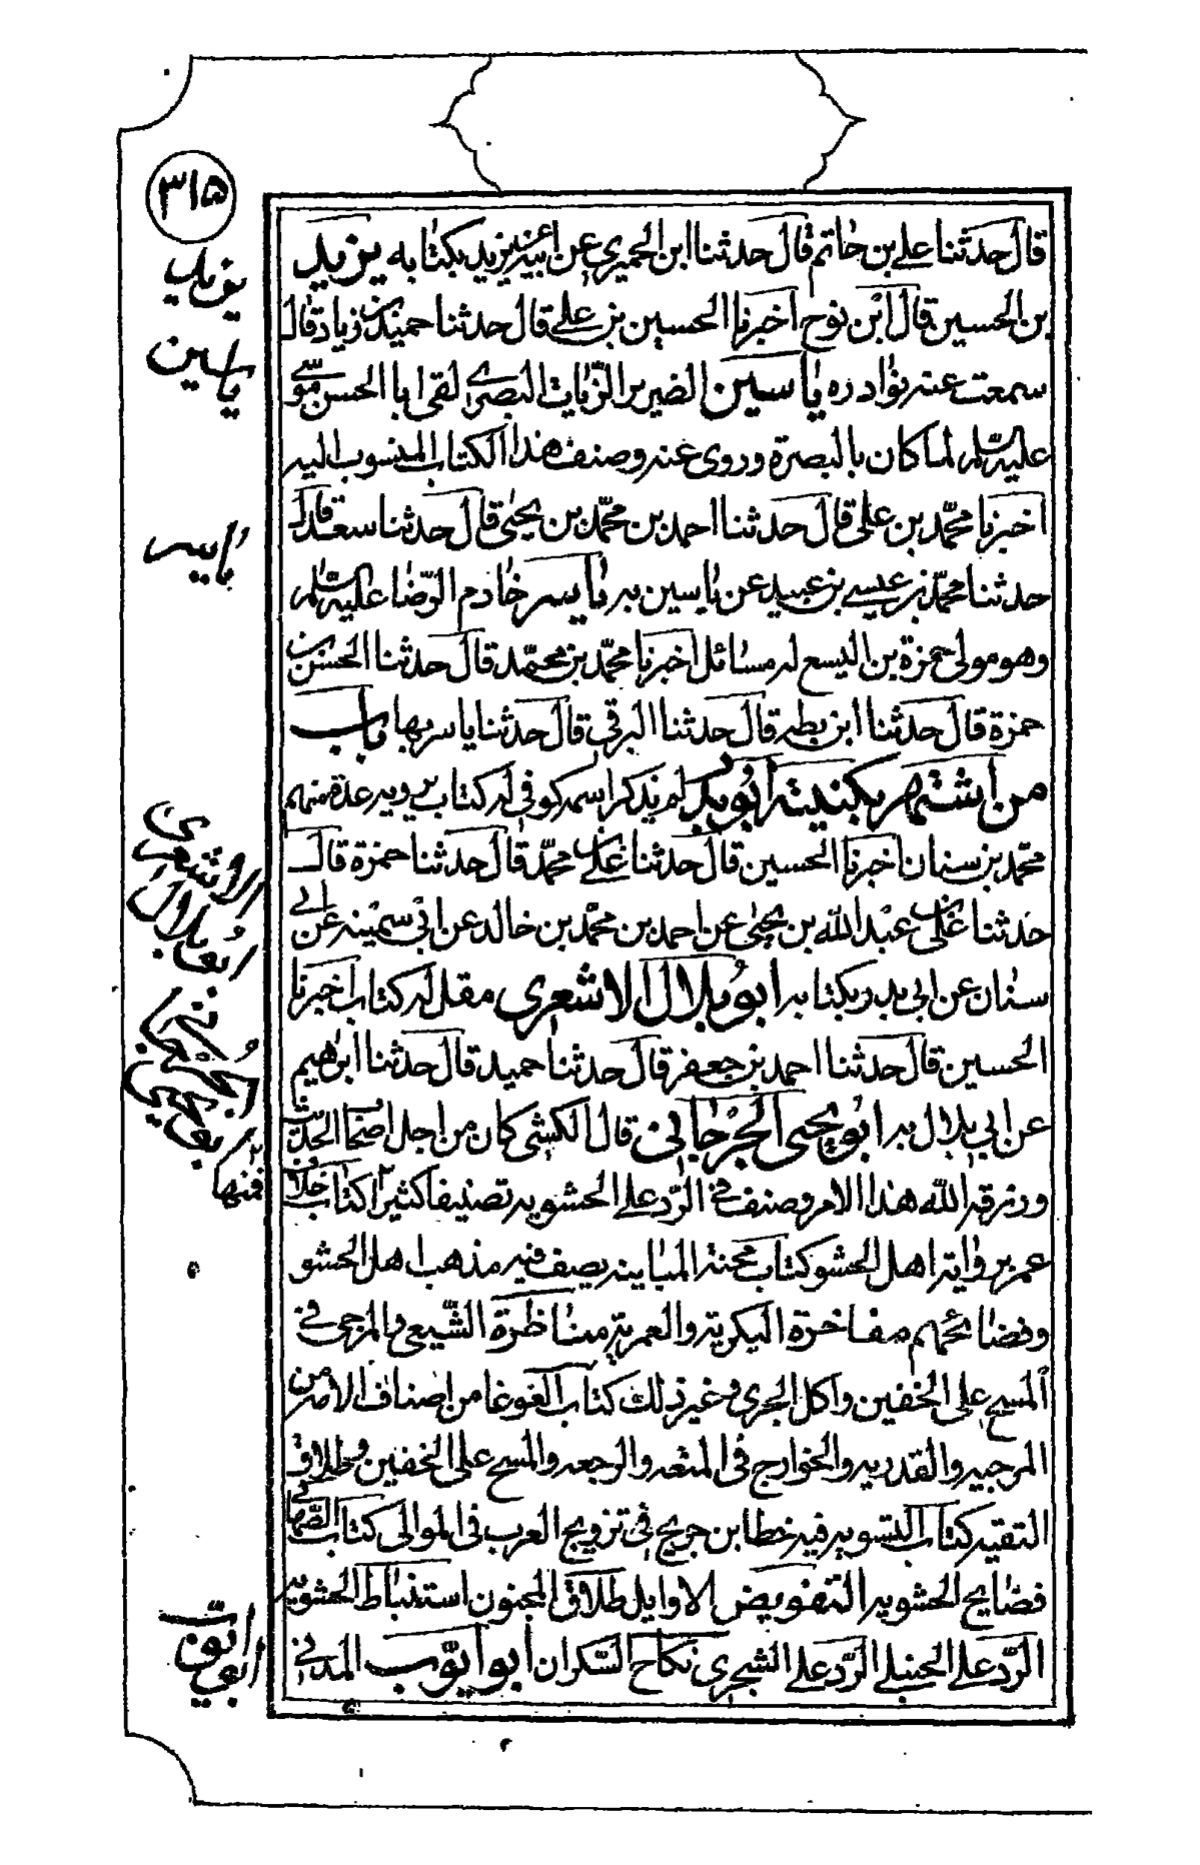 ٣١٥
قال حدثنا علي بن حاتم قال حدثنا ابن الحميري عن ابيه عن يزيد بكتابه يزيد
بن الحسين قال ابن نوح اخبرنا الحسين بن علي قال حدثنا حميد بن زياد قال
سمعت عنه نوادره ياسين الضرير الزيات البصري لقي ابا الحسن موسى
عليه السلم لما كان بالبصرة وروى عنه وصنف هذا الكتاب المنسوب اليه
اخبرنا محمد بن علي قال حدثنا احمد بن محمد بن يحيى قال حدثنا سعد قال
حدثنا محمد بن عيسى بن عبيد عن ياسين به ياسر خادم الرضا عليه السلم
وهو مولى حمزة بن اليسع له مسائل اخبرنا محمد بن محمد قال حدثنا الحسن بن
حمزة قال حدثنا ابن بطه قال حدثنا البرقي قال حدثنا ياسر بها باب
من اشتهر بكنيته ابو بدر لم يذكر اسمه كوفي له كتاب يرويه عدة منهم
محمد بن سنان اخبرنا الحسين قال حدثنا علي بن محمد قال حدثنا حمزة قال
حدثنا علي بن عبد الله بن يحيى عن احمد بن محمد بن خالد عن ابي سمينه عن ابن
سنان عن ابي بدر بكتابه ابو بلال الاشعري مقل له كتاب اخبرنا
الحسين قال حدثنا احمد بن جعفر قال حدثنا حميد قال حدثنا ابراهيم
عن ابي بلال به ابو يحيى الجرجاني قال الكشي كان من اجل اصحاب الحديث
ورزقه الله هذا الامر وصنف في الرد على الحشويه تصنيفا كثيرا ٢ كتاب خلاف
عمر برواية اهل الحشو كتاب محنة المباينه يصف فيه مذهب اهل الحشو
وفضائحهم مفاخرة البكرية والعمرية مناظرة الشيعي والمرجي في
المسح على الخفين واكل الجري وغير ذلك كتاب الغوغا من اصناف الامة من
المرجيه والقدريه والخوارج في المتعه والرجعه والمسح على الخفين وطلاق
التقيه كتاب التسويه فيه خطا ابن جريج في تزويج العرب في الموالي كتاب الصهاكي
فضايح الحشويه التفويض الاوايل طلاق المجنون استنباط الحشويه
الرد على الحنبلي الرد على الشجري نكاح السكران ابو ايوب المدني
يزيد
ياسين
ياسر
ابو بلال
الاشعري
ابو يحيى
الجرجاني
٢ فمنها
ابو ايوب